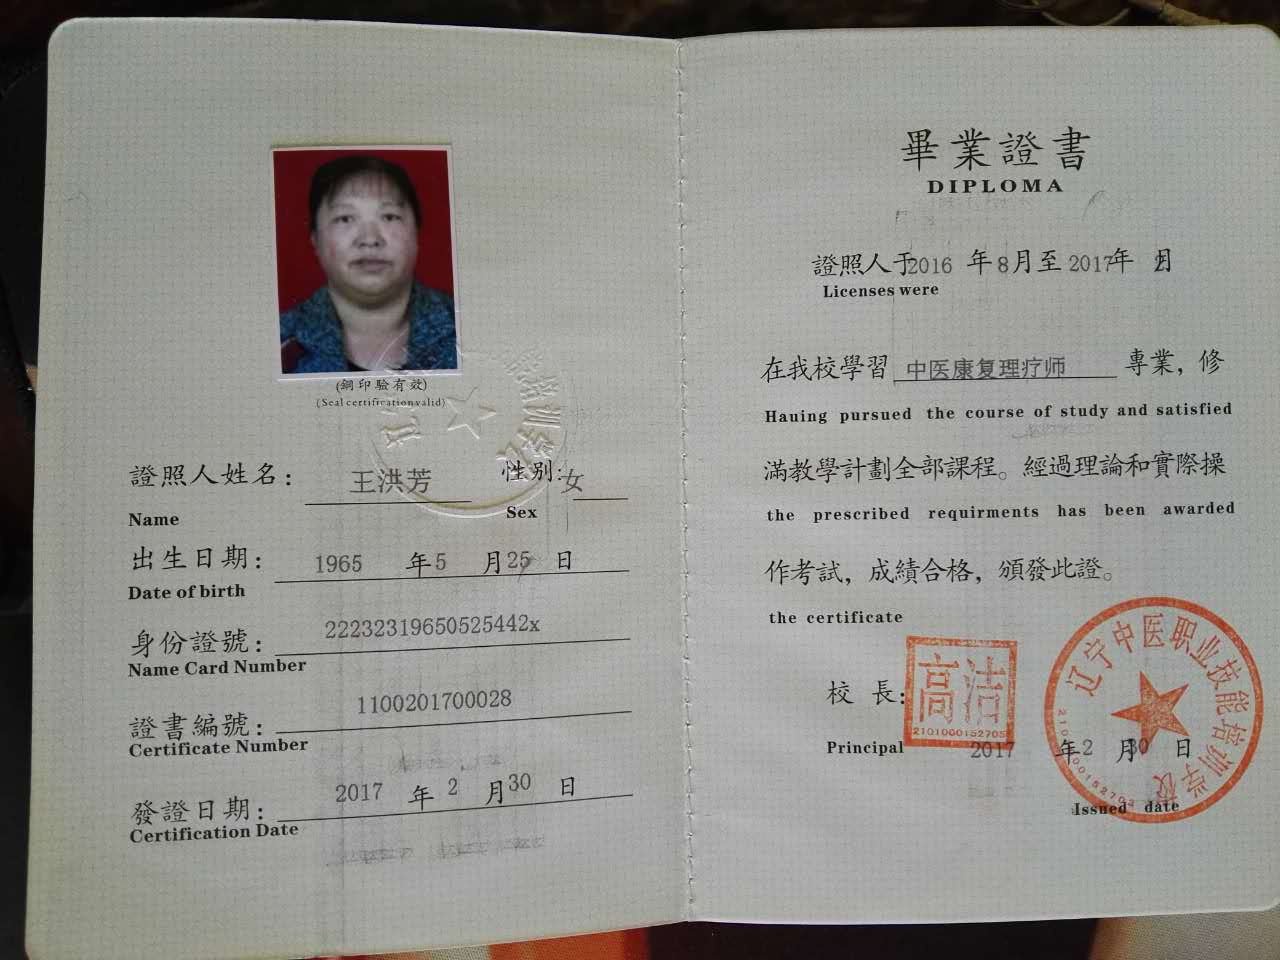 (鋼印驗有效)
(Seal certification valid)
證照人姓名： 王洪芳 性别： 女
Name Sex
出生日期： 1965 年 5 月 25 日
Date of birth
身份證號： 22232319650525442x
Name Card Number
證書編號： 1100201700028
Certificate Number
發證日期： 2017 年 2 月 30 日
Certification Date
畢業證書
DIPLOMA
證照人于 2016 年 8 月至 2017 年 2 月
Licenses were
在我校學習 中医康复理疗师 專業，修
Hauing pursued the course of study and satisfied
滿教學計劃全部課程。經過理論和實際操
the prescribed requirments has been awarded
作考試，成績合格，頒發此證。
the certificate
校長： 高洁
2101000152705
Principal 2017 年 2 月 30 日
Issued date
辽宁中医职业技能培训学校